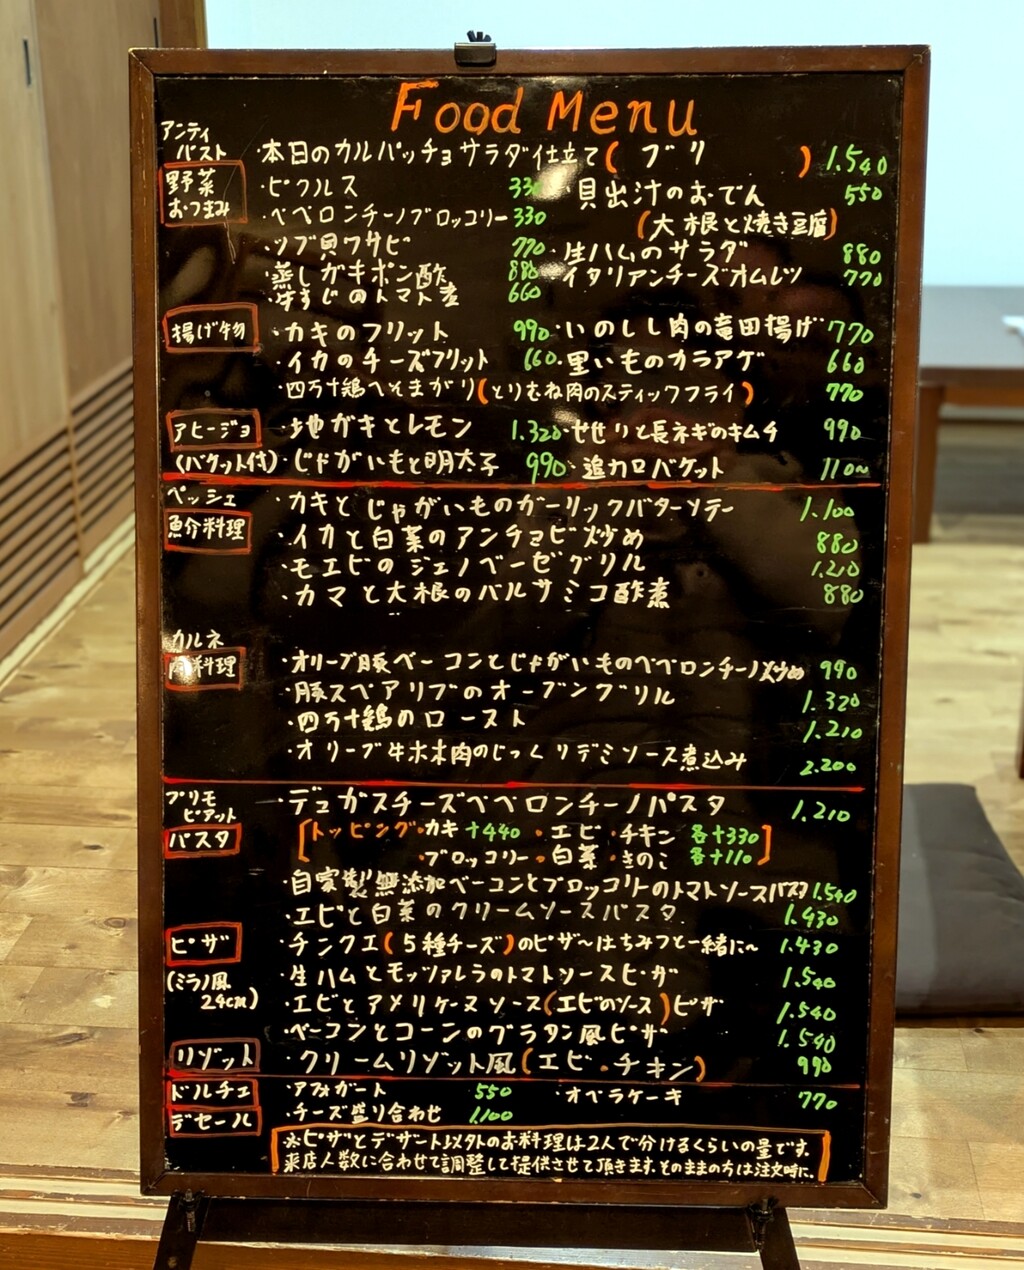 Food Menu
アンティ
パスト
・本日のカルパッチョサラダ仕立て( ブリ ) 1.540
野菜
おつまみ
・ピクルス 330
・貝出汁のおでん 550
(大根と焼き豆腐)
・ペペロンチーノブロッコリー 330
・ツブ貝ワサビ 770
・生ハムのサラダ 880
・蒸しガキポン酢 880
・イタリアンチーズオムレツ 770
・牛すじのトマト煮 660
揚げ物
・カキのフリット 990
・いのしし肉の竜田揚げ 770
・イカのチーズフリット 660
・里いものカラアゲ 660
・四万十鶏へそまがり(とりむね肉のスティックフライ) 770
アヒージョ
・地ガキとレモン 1.320
・せせりと長ネギのキムチ 990
(バケット付)
・じゃがいもと明太子 990
・追加バケット 110~
ペッシェ
魚介料理
・カキとじゃがいものガーリックバターソテー 1.100
・イカと白菜のアンチョビ炒め 880
・モエビのジェノベーゼグリル 1.210
・カマと大根のバルサミコ酢煮 880
カルネ
肉料理
・オリーブ豚ベーコンとじゃがいものペペロンチーノ炒め 990
・豚スペアリブのオーブングリル 1.320
・四万十鶏のロースト 1.210
・オリーブ牛ホホ肉のじっくりデミソース煮込み 2.200
プリモ
ピアット
パスタ
・デュカスチーズペペロンチーノパスタ 1.210
[トッピング・カキ+440 ・エビ・チキン 各+330
・ブロッコリー・白菜・きのこ 各+110]
・自家製無添加ベーコンとブロッコリーのトマトソースパスタ 1.540
・エビと白菜のクリームソースパスタ 1.430
ピザ
(ミラノ風
24cm)
・チンクエ(5種チーズ)のピザ~はちみつと一緒に~ 1.430
・生ハムとモッツァレラのトマトソースピザ 1.540
・エビとアメリケーヌソース(エビのソース)ピザ 1.540
・ベーコンとコーンのグラタン風ピザ 1.540
リゾット
・クリームリゾット風(エビ・チキン) 990
ドルチェ
デセール
・アフォガート 550
・オペラケーキ 770
・チーズ盛り合わせ 1.100
※ピザとデザート以外のお料理は2人で分けるくらいの量です。
来店人数に合わせて調整して提供させて頂きます。そのままの方は注文時に。